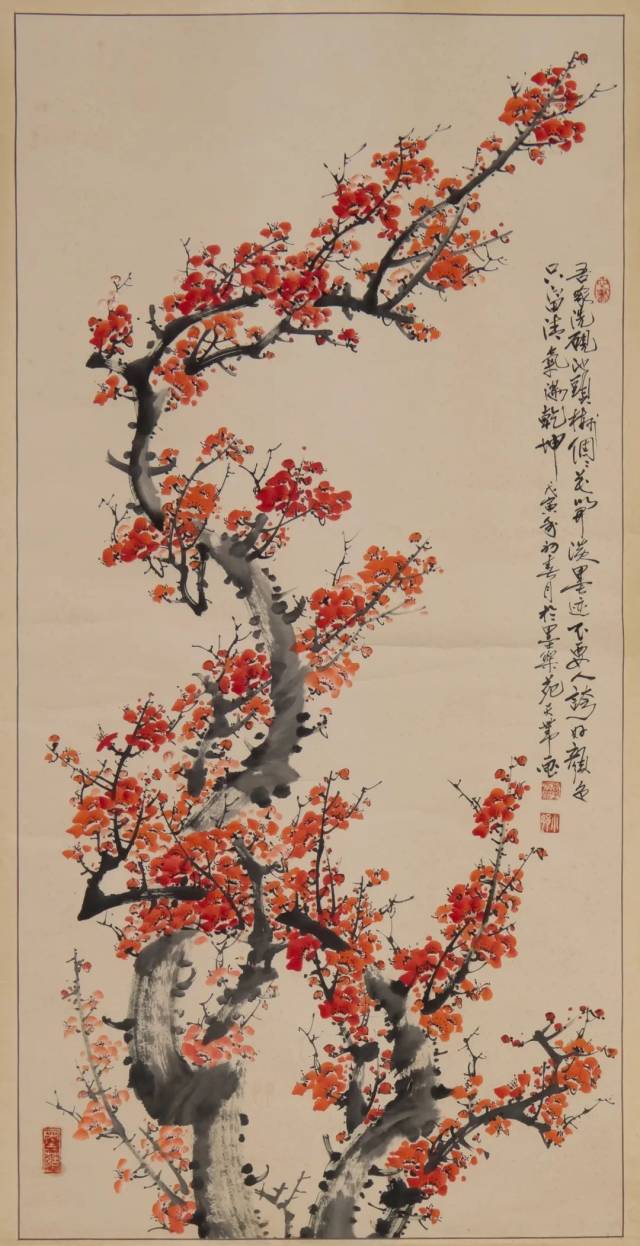 吾家洗硯池頭樹個々花開淡墨迹不要人誇好顏色
只留清氣滿乾坤 戊寅年初春月於墨樂苑天華画